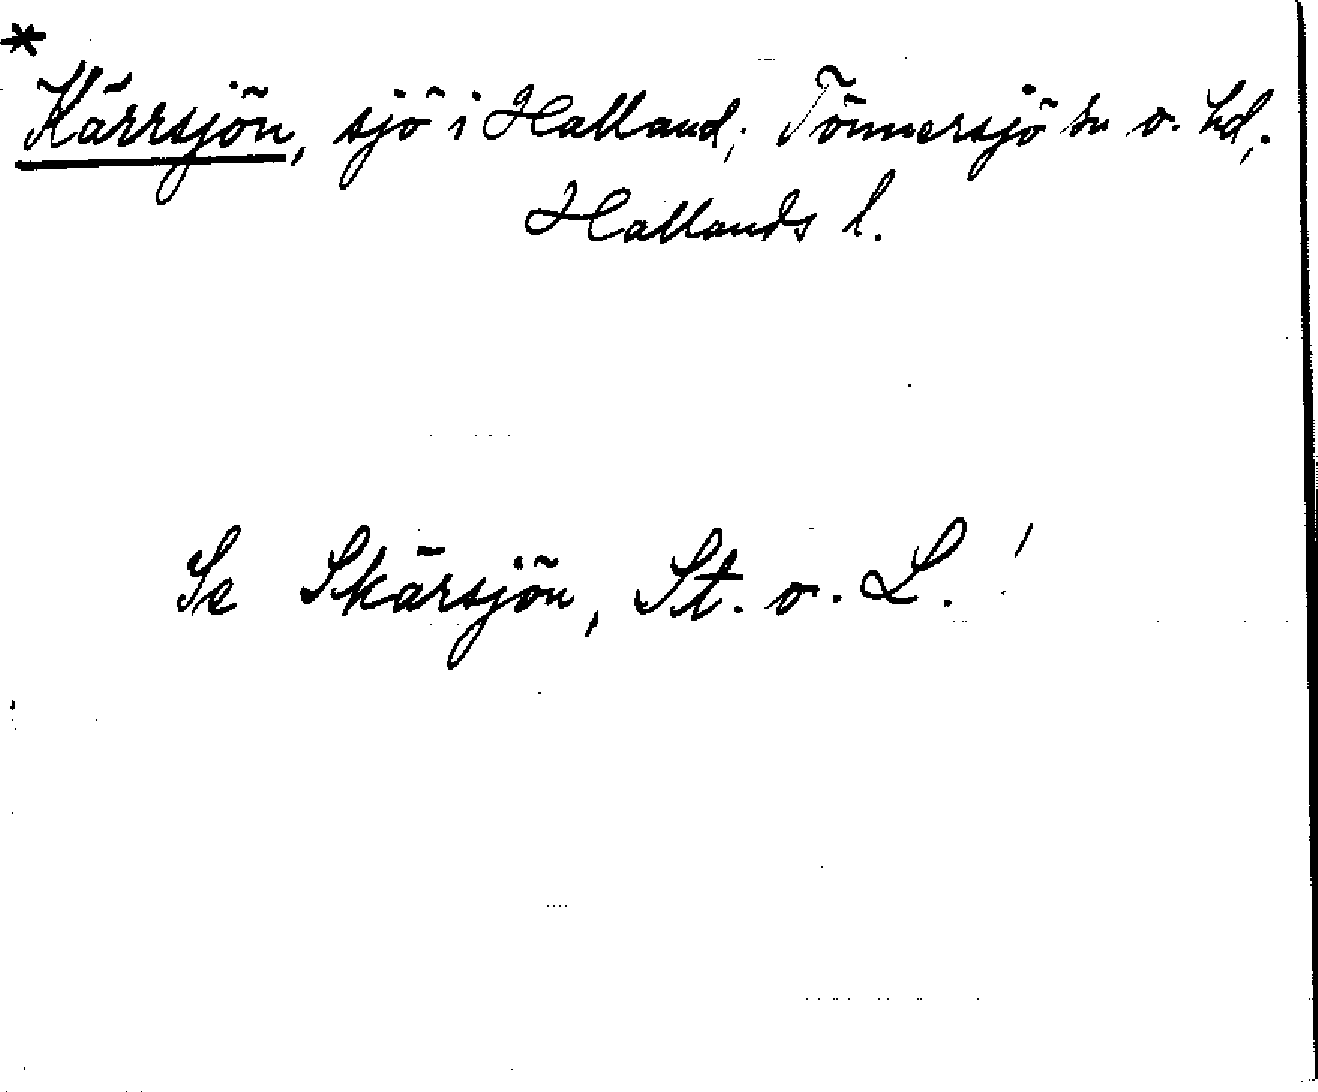 *
Kärrsjön, sjö i Halland; Tönnersjö sn o. hd,.
Hallands l.
Se Skärsjön, St. o. L.!